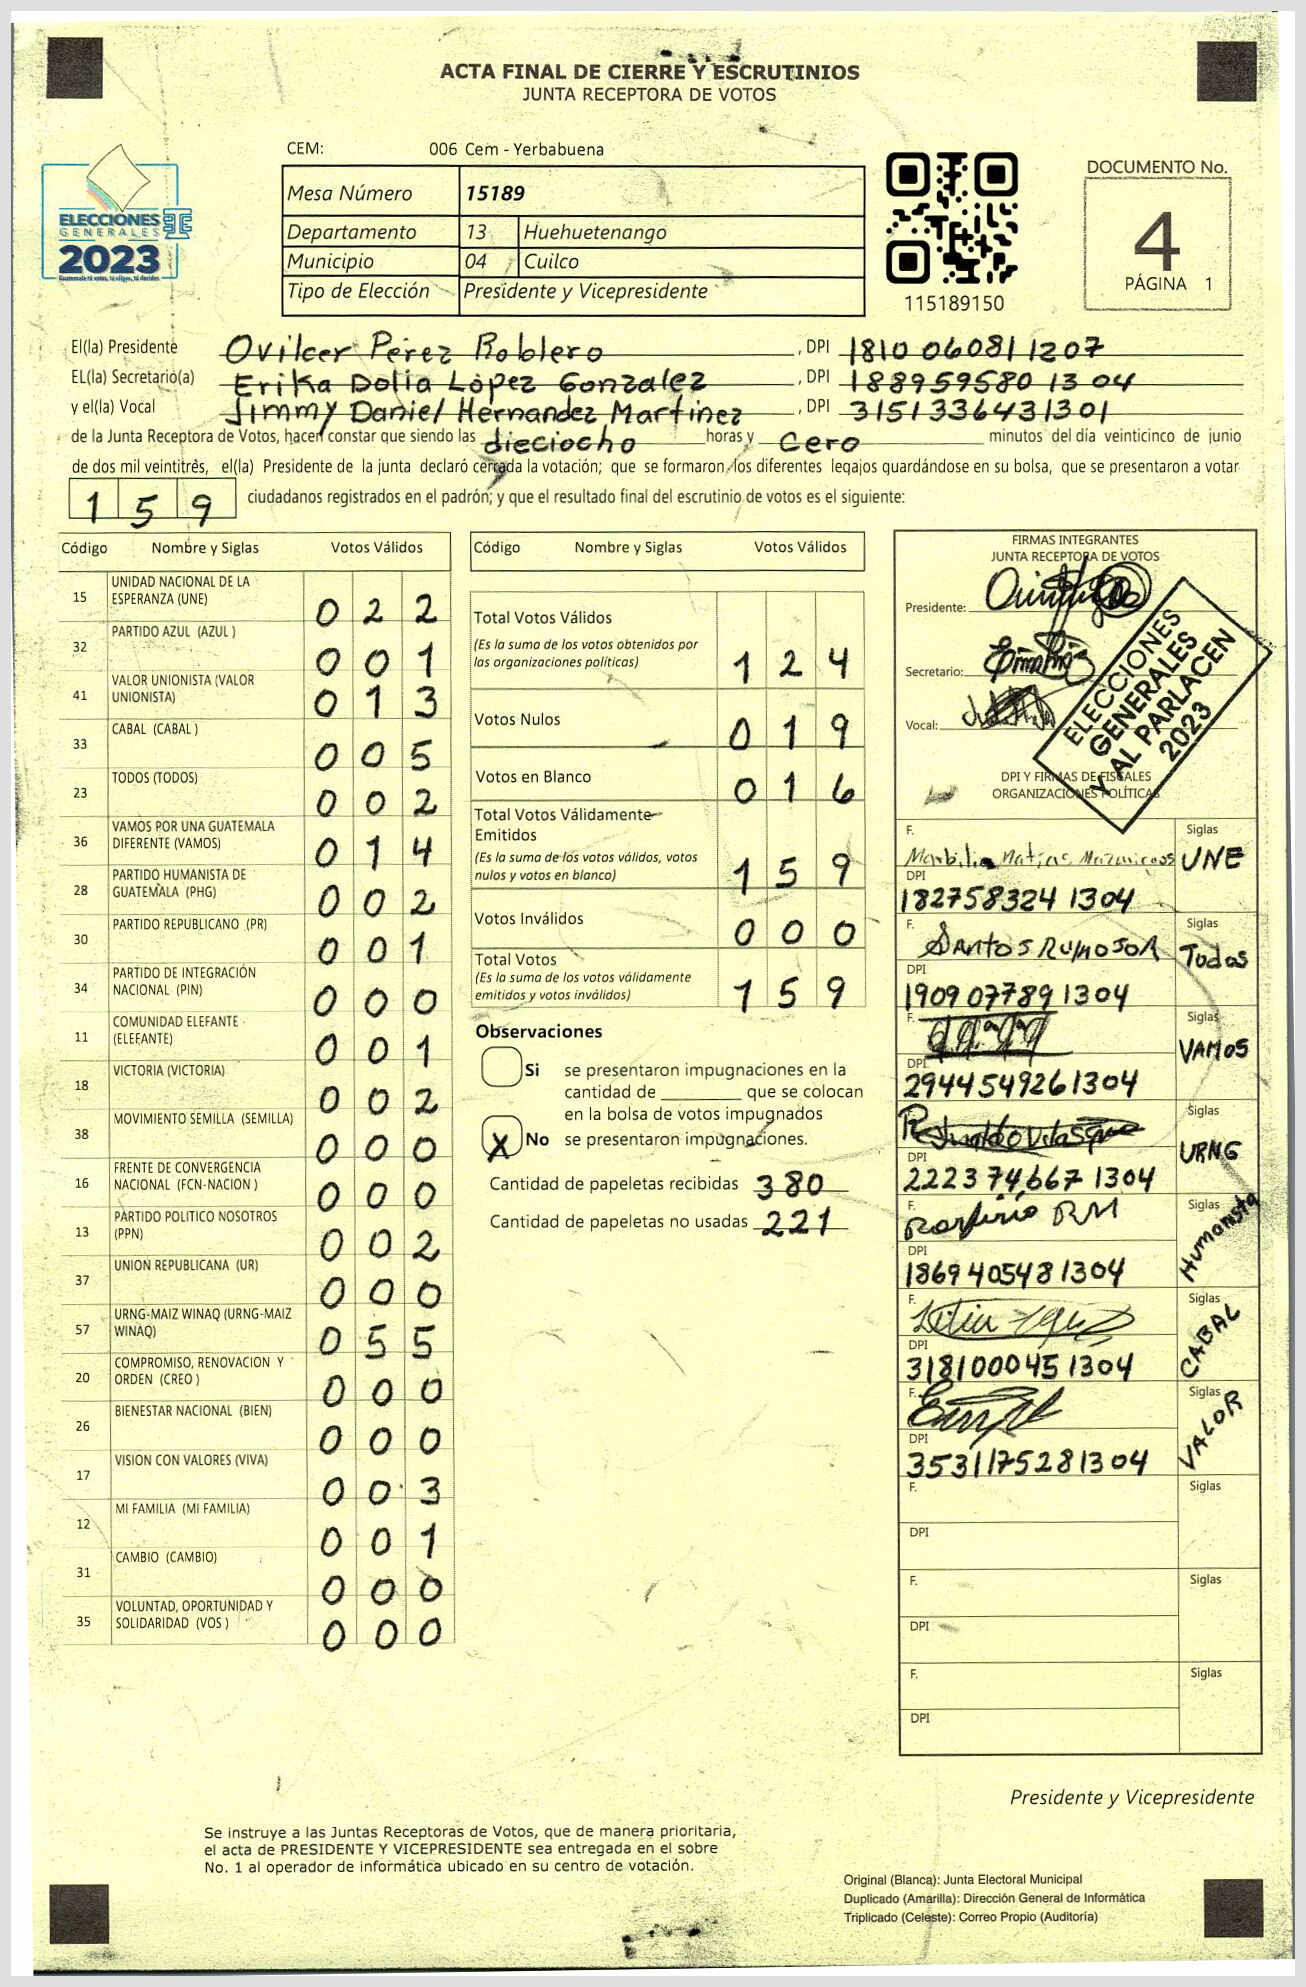 ACTA FINAL DE CIERRE Y ESCRUTINIOS
JUNTA RECEPTORA DE VOTOS
CEM: 006 Cem - Yerbabuena
ELECCIONES
GENERALES
2023
Mesa Número 15189
Departamento 13 Huehuetenango
Municipio 04 Cuilco
Tipo de Elección Presidente y Vicepresidente
115189150
DOCUMENTO No.
4
PÁGINA 1
El(la) Presidente Ovilcer Pérez Roblero, DPI 1810 06081 1207
EL(la) Secretario(a) Erika Dolia López Gonzalez, DPI 188959580 1304
y el(la) Vocal Jimmy Daniel Hernandez Martinez, DPI 3151336431301
de la Junta Receptora de Votos, hacen constar que siendo las dieciocho horas y cero minutos del día veinticinco de junio
de dos mil veintitrés, el(la) Presidente de la junta declaró cerrada la votación; que se formaron los diferentes legajos guardándose en su bolsa, que se presentaron a votar
159 ciudadanos registrados en el padrón; y que el resultado final del escrutinio de votos es el siguiente:
Código Nombre y Siglas Votos Válidos
15 UNIDAD NACIONAL DE LA ESPERANZA (UNE) 022
32 PARTIDO AZUL (AZUL ) 001
41 VALOR UNIONISTA (VALOR UNIONISTA) 013
33 CABAL (CABAL ) 005
23 TODOS (TODOS) 002
36 VAMOS POR UNA GUATEMALA DIFERENTE (VAMOS) 014
28 PARTIDO HUMANISTA DE GUATEMALA (PHG) 002
30 PARTIDO REPUBLICANO (PR) 001
34 PARTIDO DE INTEGRACIÓN NACIONAL (PIN) 000
11 COMUNIDAD ELEFANTE (ELEFANTE) 001
18 VICTORIA (VICTORIA) 002
38 MOVIMIENTO SEMILLA (SEMILLA) 000
16 FRENTE DE CONVERGENCIA NACIONAL (FCN-NACION ) 000
13 PARTIDO POLITICO NOSOTROS (PPN) 002
37 UNION REPUBLICANA (UR) 000
57 URNG-MAIZ WINAQ (URNG-MAIZ WINAQ) 055
20 COMPROMISO, RENOVACION Y ORDEN (CREO ) 000
26 BIENESTAR NACIONAL (BIEN) 000
17 VISION CON VALORES (VIVA) 003
12 MI FAMILIA (MI FAMILIA) 001
31 CAMBIO (CAMBIO) 000
35 VOLUNTAD, OPORTUNIDAD Y SOLIDARIDAD (VOS ) 000
Código Nombre y Siglas Votos Válidos
Total Votos Válidos
(Es la suma de los votos obtenidos por
las organizaciones políticas) 124
Votos Nulos 019
Votos en Blanco 016
Total Votos Válidamente
Emitidos
(Es la suma de los votos válidos, votos
nulos y votos en blanco) 159
Votos Inválidos 000
Total Votos
(Es la suma de los votos válidamente
emitidos y votos inválidos) 159
Observaciones
Si se presentaron impugnaciones en la
cantidad de ________ que se colocan
en la bolsa de votos impugnados
X No se presentaron impugnaciones.
Cantidad de papeletas recibidas 380
Cantidad de papeletas no usadas 221
FIRMAS INTEGRANTES
JUNTA RECEPTORA DE VOTOS
Presidente:
Secretario:
Vocal:
ELECCIONES
GENERALES
Y AL PARLACEN
2023
DPI Y FIRMAS DE FISCALES
ORGANIZACIONES POLÍTICAS
F. Siglas UNE
DPI 182758324 1304
F. Santos Siglas Todos
DPI 1909 07789 1304
F. Siglas VAMOS
DPI 2944549261304
Siglas URNG
DPI 222374667 1304
F. Porfirio RM Siglas Humanista
DPI 1869405481304
F. Siglas CABAL
DPI 318100045 1304
F. Siglas VALOR
DPI 3531175281304
F. Siglas
DPI
F. Siglas
DPI
F. Siglas
DPI
Presidente y Vicepresidente
Se instruye a las Juntas Receptoras de Votos, que de manera prioritaria,
el acta de PRESIDENTE Y VICEPRESIDENTE sea entregada en el sobre
No. 1 al operador de informática ubicado en su centro de votación.
Original (Blanca): Junta Electoral Municipal
Duplicado (Amarilla): Dirección General de Informática
Triplicado (Celeste): Correo Propio (Auditoría)